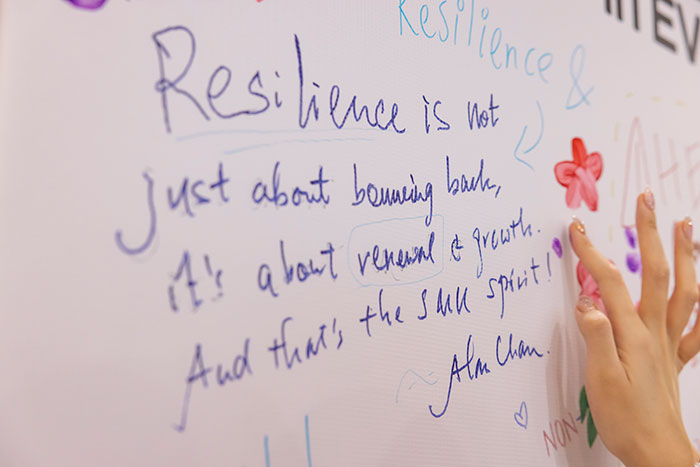 IN EV
Resilience &
Resilience is not
just about bouncing back,
it's about renewal & growth.
And that's the SMU spirit!
Alan Chan.
NON-